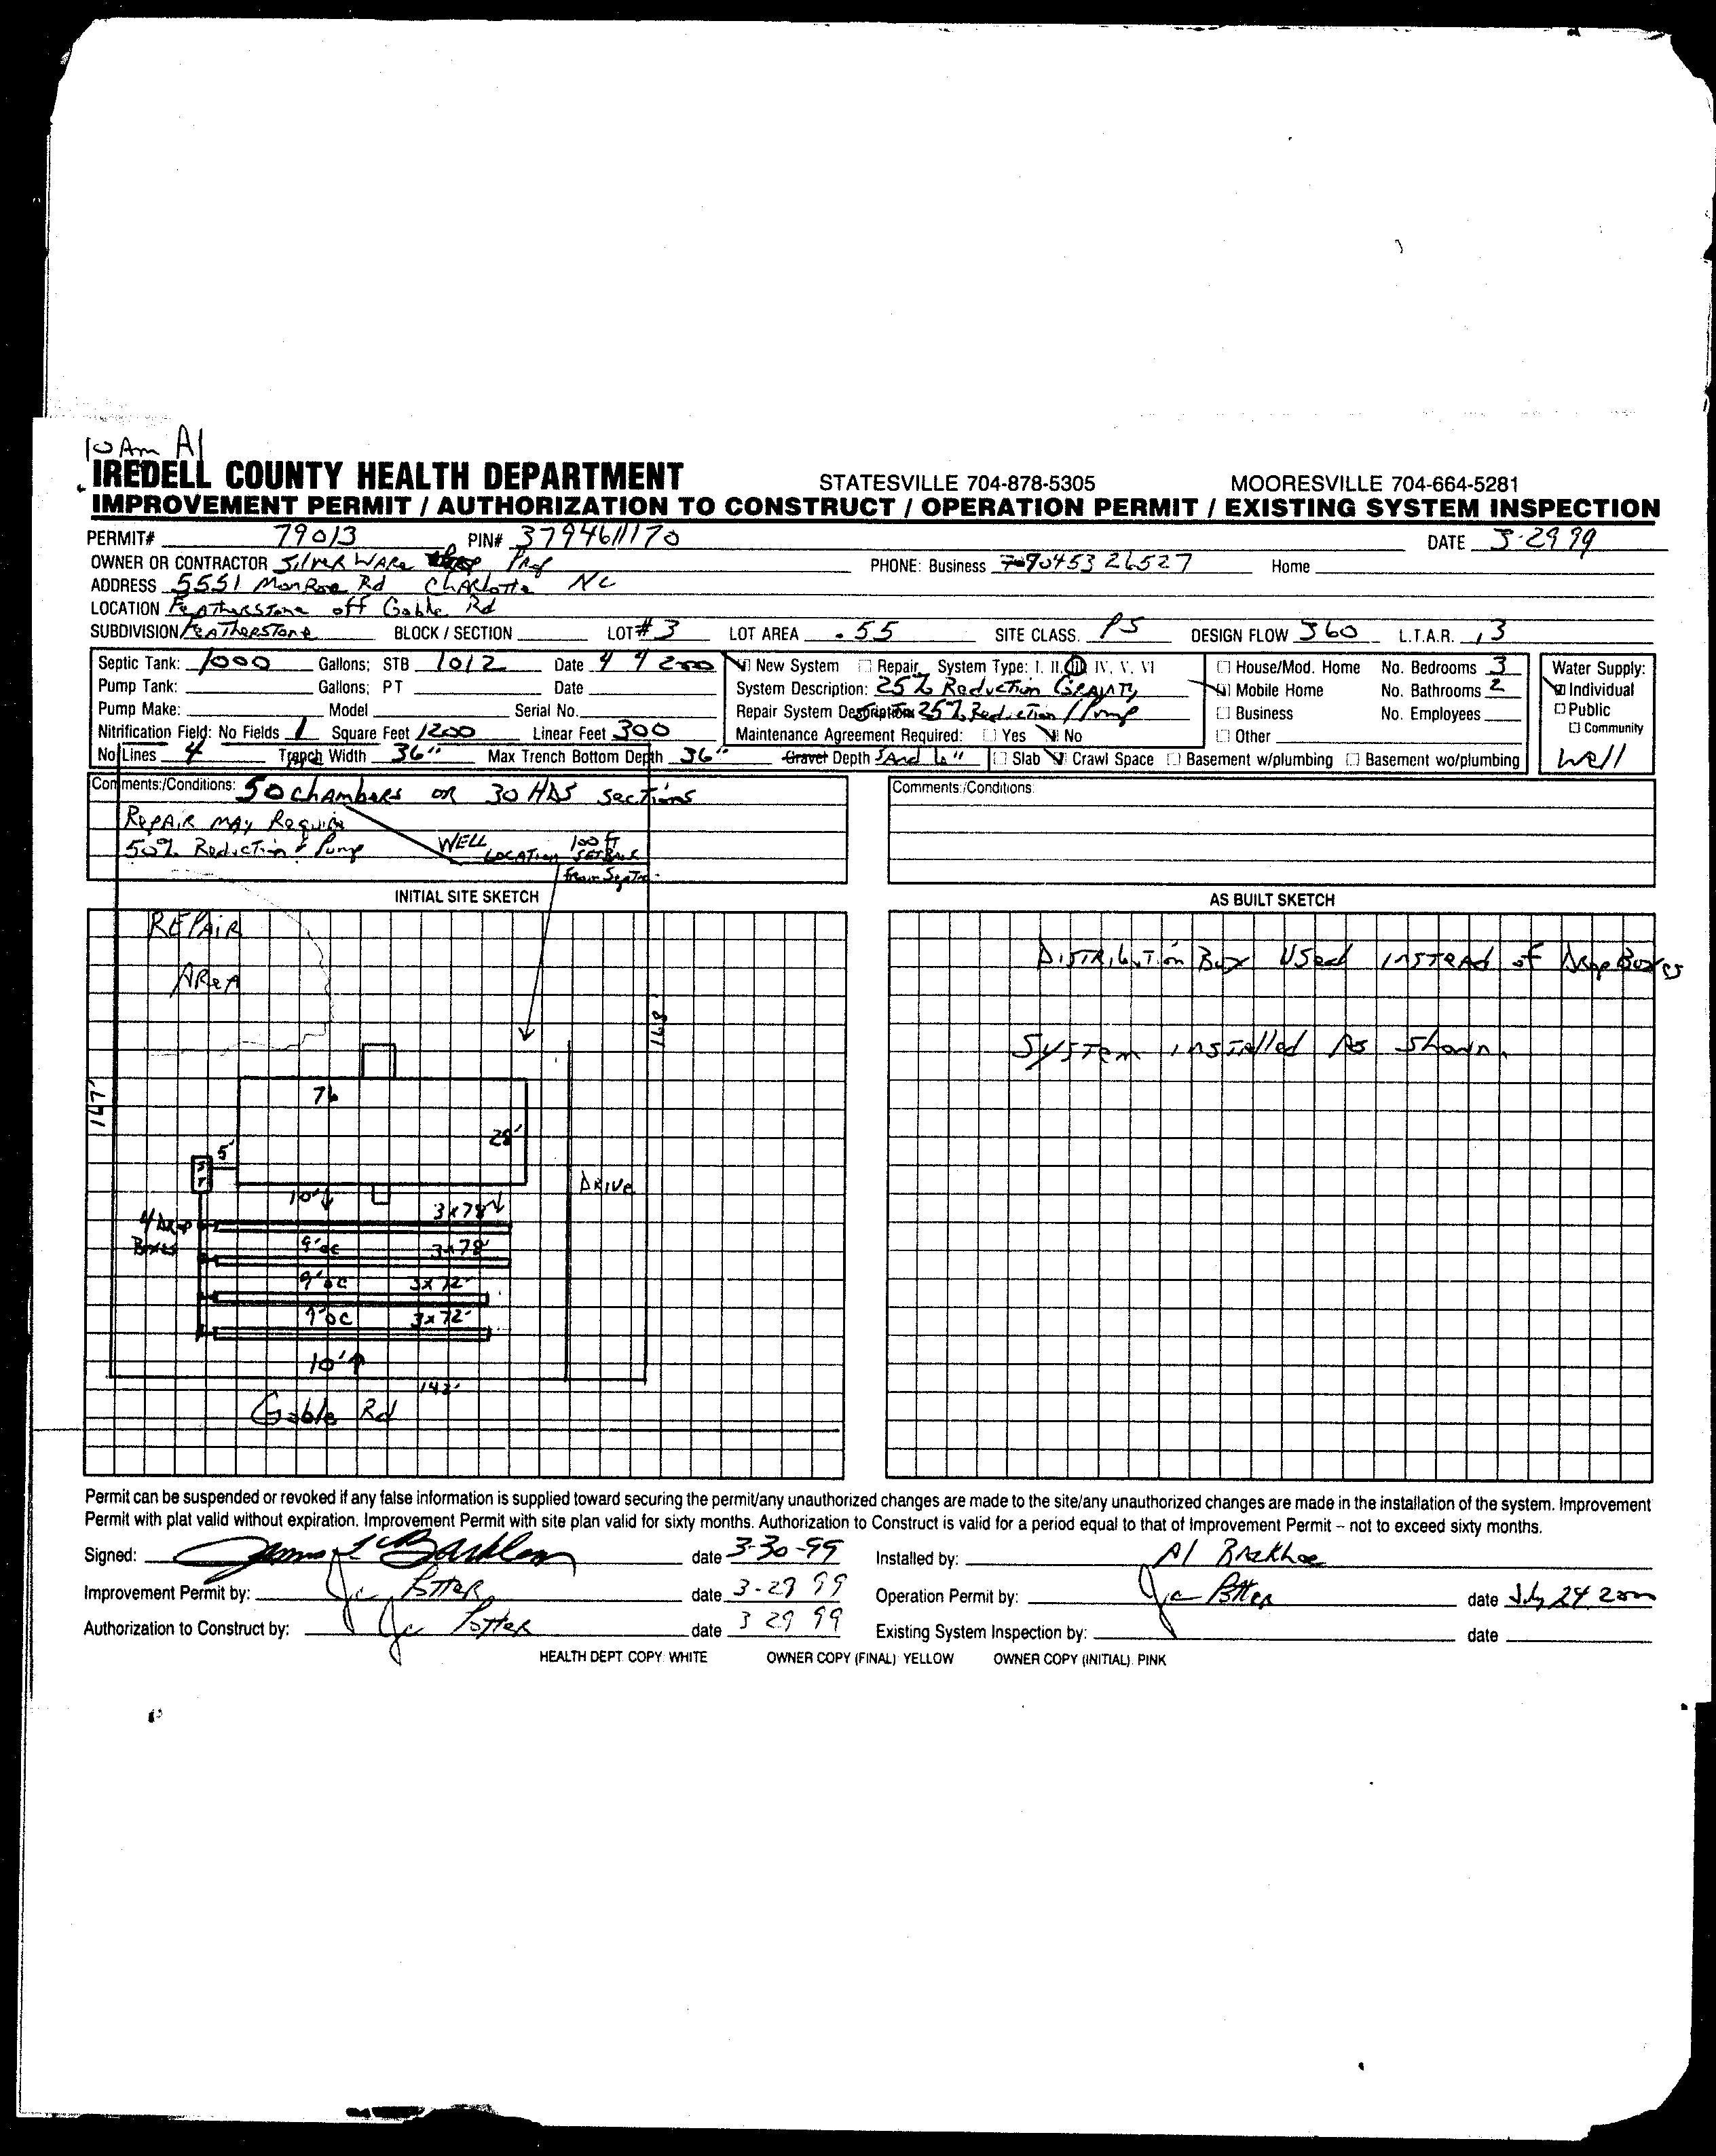 10 Am Al
IREDELL COUNTY HEALTH DEPARTMENT STATESVILLE 704-878-5305 MOORESVILLE 704-664-5281
IMPROVEMENT PERMIT / AUTHORIZATION TO CONSTRUCT / OPERATION PERMIT / EXISTING SYSTEM INSPECTION
PERMIT# 79013 PIN# 3794611170 DATE 3-29 99
OWNER OR CONTRACTOR Silver Ware Prof PHONE: Business Home
ADDRESS 5551 Monroe Rd Charlotte NC
LOCATION Featherstone off Gable Rd
SUBDIVISION Featherstone BLOCK / SECTION LOT# 3 LOT AREA .55 SITE CLASS. PS DESIGN FLOW 360 L.T.A.R. .3
Septic Tank: 1000 Gallons; STB 1012 Date 4 4 200 New System Repair System Type: I. II. III IV. V. VI House/Mod. Home No. Bedrooms 3 Water Supply:
Pump Tank: Gallons; PT Date System Description: 25% Reduction Gravity Mobile Home No. Bathrooms 2 Individual
Pump Make: Model Serial No. Repair System Description 25% Reduction / Pump Business No. Employees Public
Nitrification Field: No Fields 1 Square Feet 1200 Linear Feet 300 Maintenance Agreement Required: Yes No Other Community
No Lines 4 Trench Width 36" Max Trench Bottom Depth 36" Gravel Depth Sand 6" Slab Crawl Space Basement w/plumbing Basement wo/plumbing Well
Comments:/Conditions: 50 chambers or 30 HDS sections Comments:/Conditions:
Repair may Require
50% Reduction & Pump WELL LOCATION 100 ft SETBACK
From Septic
INITIAL SITE SKETCH AS BUILT SKETCH
REPAIR
AREA
Distribution Box Used instead of Drop Boxes
System installed As Shown.
168'
147'
76
28'
5'
ST
10'
DRIVE
4 Drop
Boxes
3x78'
9'oc 3x78'
9'oc 3x72'
9'oc 3x72'
10'
142'
Gable Rd
Permit can be suspended or revoked if any false information is supplied toward securing the permit/any unauthorized changes are made to the site/any unauthorized changes are made in the installation of the system. Improvement
Permit with plat valid without expiration. Improvement Permit with site plan valid for sixty months. Authorization to Construct is valid for a period equal to that of Improvement Permit – not to exceed sixty months.
Signed: date 3-30-99 Installed by: Al Brakhoe
Improvement Permit by: Jc Potter date 3-29 99 Operation Permit by: Jc Potter date July 24 2000
Authorization to Construct by: Jc Potter date 3 29 99 Existing System Inspection by: date
HEALTH DEPT. COPY: WHITE OWNER COPY (FINAL): YELLOW OWNER COPY (INITIAL): PINK